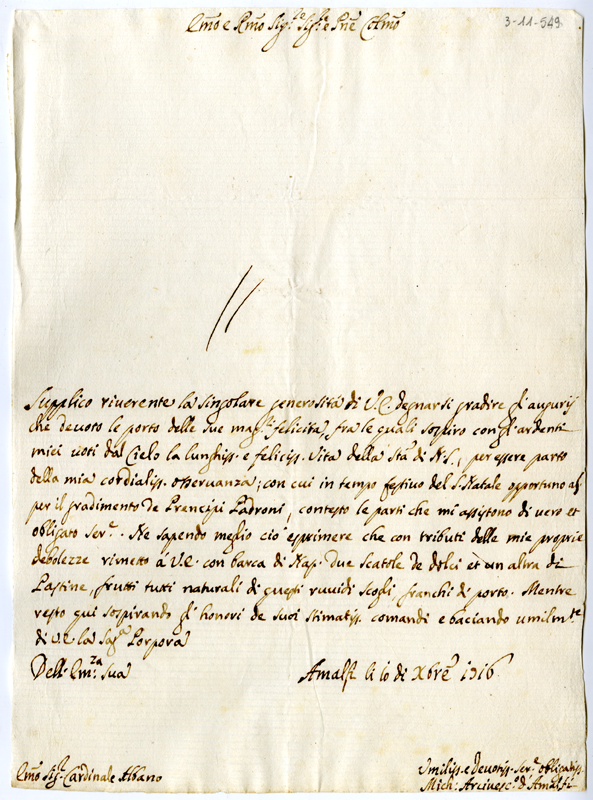 3-11-549
Emo e Rmo Sig.re Sig.re e Pne Colmo
Supplico riverente la singolare generosità di V.E. degnarsi gradire gl'augurij
che devoto le porto delle sue mag.ri felicità, fra le quali sospiro con gl'ardenti
miei voti dal Cielo la lunghiss. e feliciss. vita della Stà di N.S., per essere parto
della mia cordialiss. osservanza; con cui in tempo festivo del S. Natale opportuno
per il gradimento de Prencipi Padroni, contesto le parti che mi assistono di vero et
obligato Ser.e. Ne sapendo meglio ciò esprimere che con tributi delle mie proprie
debolezze rimetto à V.E. con barca di Nap. due Scatole de dolci et un altra di
Pastine, frutti tutti naturali di questi ruvidi scogli, franchi di porto. Mentre
resto qui sospirando gl'honori de suoi stimatiss. comandi e baciando umilm.te
di V.E. la Sag.a Porpora
Dell' Em.za Sua
Amalfi li 10 di Xbre 1716
Emo Sig.r Cardinale Albano
Umiliss. e Devotiss. Ser.e obligatiss.
Mich: Arcivesc.o d'Amalfi